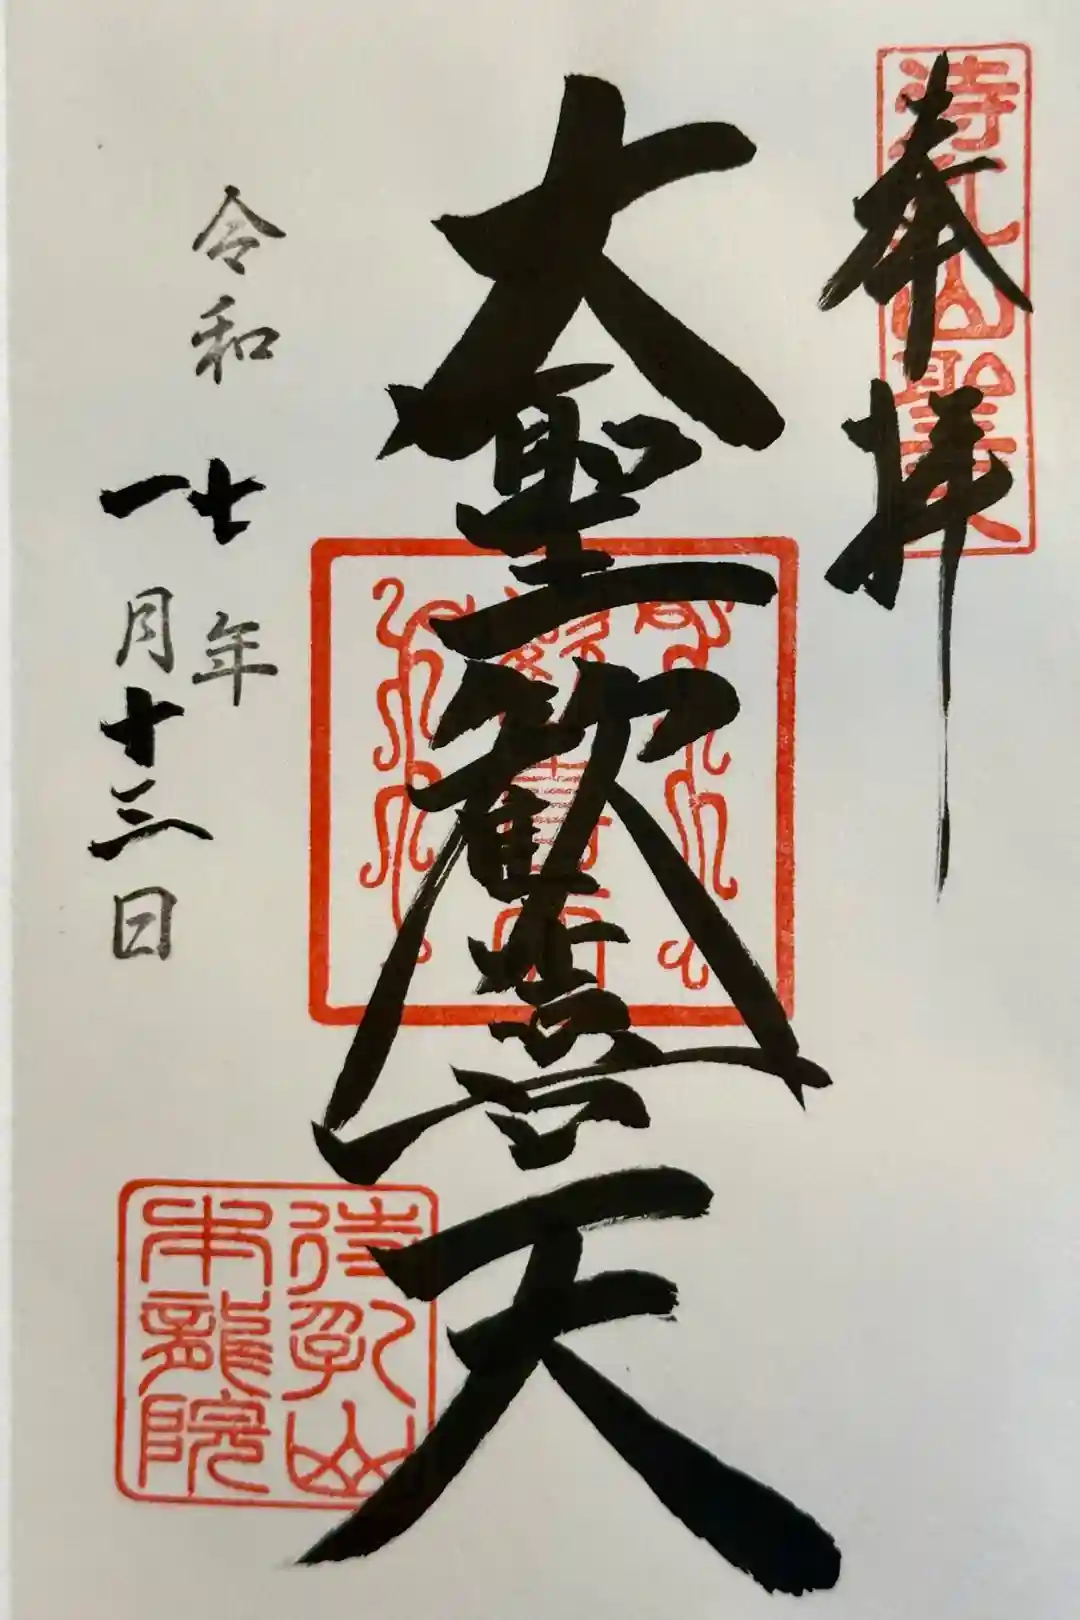 奉拝
待乳山聖天
大聖歓喜天
待乳山
本龍院
令和七年
一月十三日